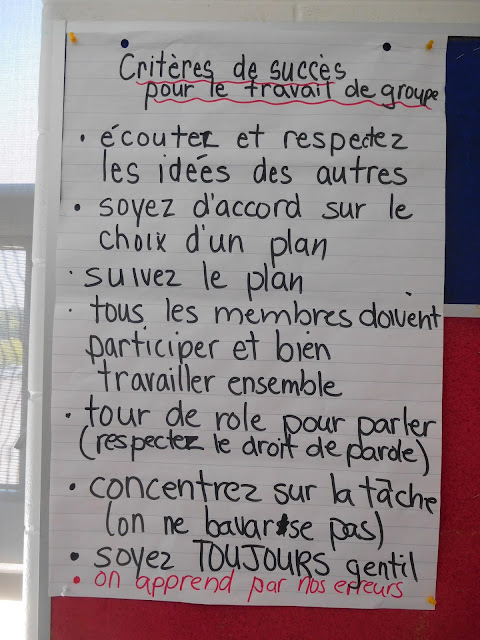 Critères de succès
pour le travail de groupe
• écoutez et respectez
les idées des autres
• soyez d'accord sur le
choix d'un plan
• suivez le plan
• tous les membres doivent
participer et bien
travailler ensemble
• tour de role pour parler
(respectez le droit de parole)
• concentrez sur la tâche
(on ne bavarse pas)
• soyez TOUJOURS gentil
• on apprend par nos erreurs